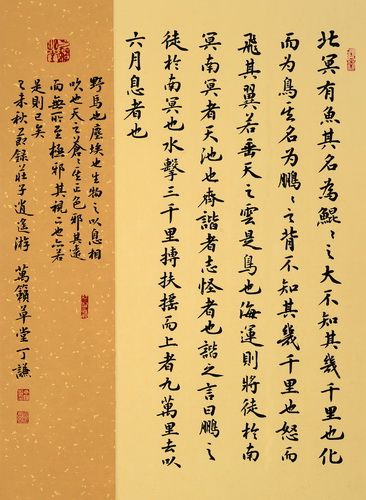 北冥有魚其名為鯤〻之大不知其幾千里也化
而為鳥其名為鵬〻之背不知其幾千里也怒而
飛其翼若垂天之雲是鳥也海運則將徙於南
冥南冥者天池也齊諧者志怪者也諧之言曰鵬之
徙於南冥也水擊三千里摶扶摇而上者九萬里去以
六月息者也
野馬也塵埃也生物之以息相
吹也天之蒼〻其正色邪其遠
而無所至極邪其視下也亦若
是則已矣
乙未秋節錄莊子逍遙游 萬籟草堂丁謙